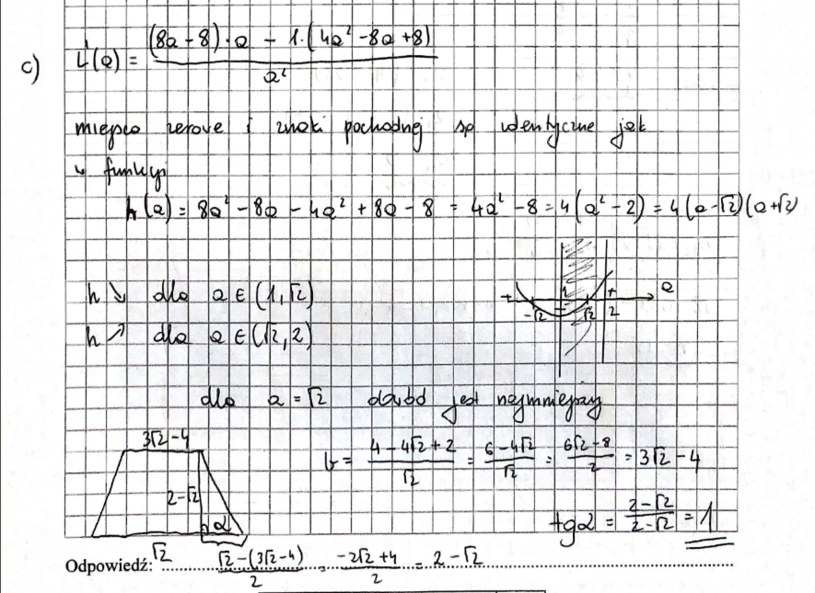 c) L'(a) = ((8a - 8) · a - 1 · (4a² - 8a + 8)) / a²
miejsca zerowe i znaki pochodnej są identyczne jak
w funkcji
h(a) = 8a² - 8a - 4a² + 8a - 8 = 4a² - 8 = 4(a² - 2) = 4(a-√2)(a+√2)
h ↘ dla a ∈ (1,√2)
h ↗ dla a ∈ (√2, 2)
+ -√2 1 √2 + 2 a
dla a = √2 obwód jest najmniejszy
3√2-4
b = (4 - 4√2 + 2)/√2 = (6 - 4√2)/√2 = (6√2 - 8)/2 = 3√2 - 4
2-√2
α
tgα = (2-√2)/(2-√2) = 1
Odpowiedź: √2 (√2-(3√2-4))/2 = (-2√2+4)/2 = 2-√2